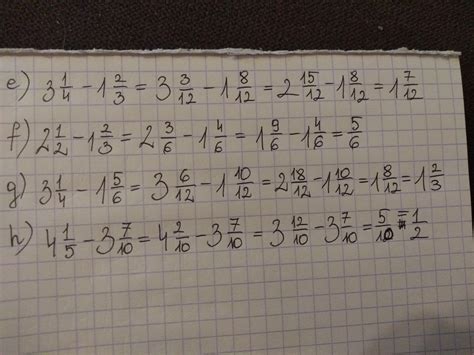 e) 3 1/4 - 1 2/3 = 3 3/12 - 1 8/12 = 2 15/12 - 1 8/12 = 1 7/12
f) 2 1/2 - 1 2/3 = 2 3/6 - 1 4/6 = 1 9/6 - 1 4/6 = 5/6
g) 3 1/4 - 1 5/6 = 3 6/12 - 1 10/12 = 2 18/12 - 1 10/12 = 1 8/12 = 1 2/3
h) 4 1/5 - 3 7/10 = 4 2/10 - 3 7/10 = 3 12/10 - 3 7/10 = 5/10 = 1/2